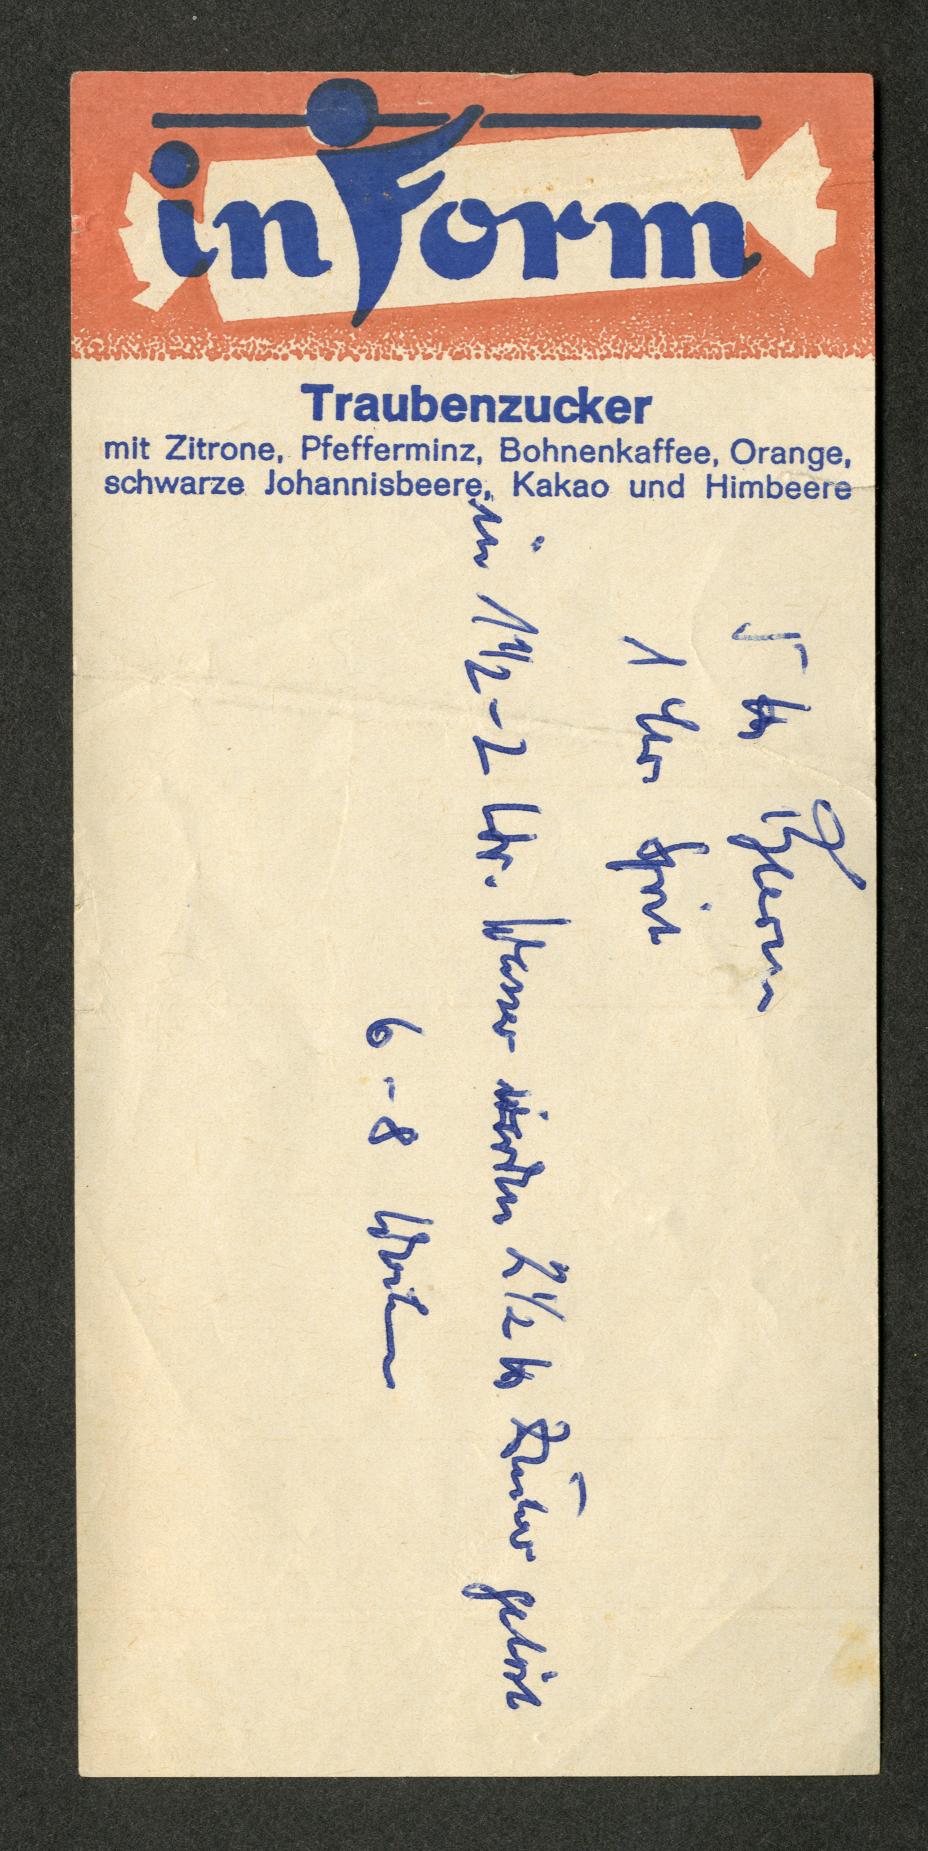 in Form
Traubenzucker
mit Zitrone, Pfefferminz, Bohnenkaffee, Orange,
schwarze Johannisbeere, Kakao und Himbeere
5 kg
1 Ltr. Sprit
in 1½-2 Ltr. Wasser werden 2½ kg Zucker gelöst
6-8 Wochen